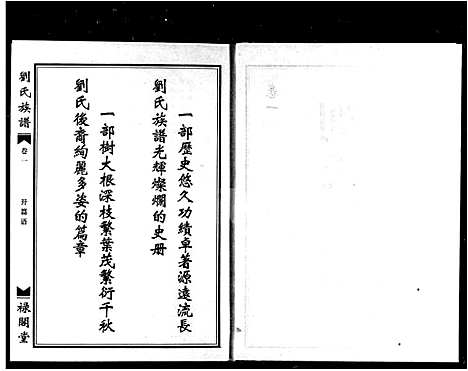 一部歷史悠久功績卓著源遠流長
劉氏族譜光輝燦爛的史册
一部樹大根深枝繁葉茂繁衍千秋
劉氏後裔絢麗多姿的篇章
劉氏族譜
卷一
开篇语
禄閣堂